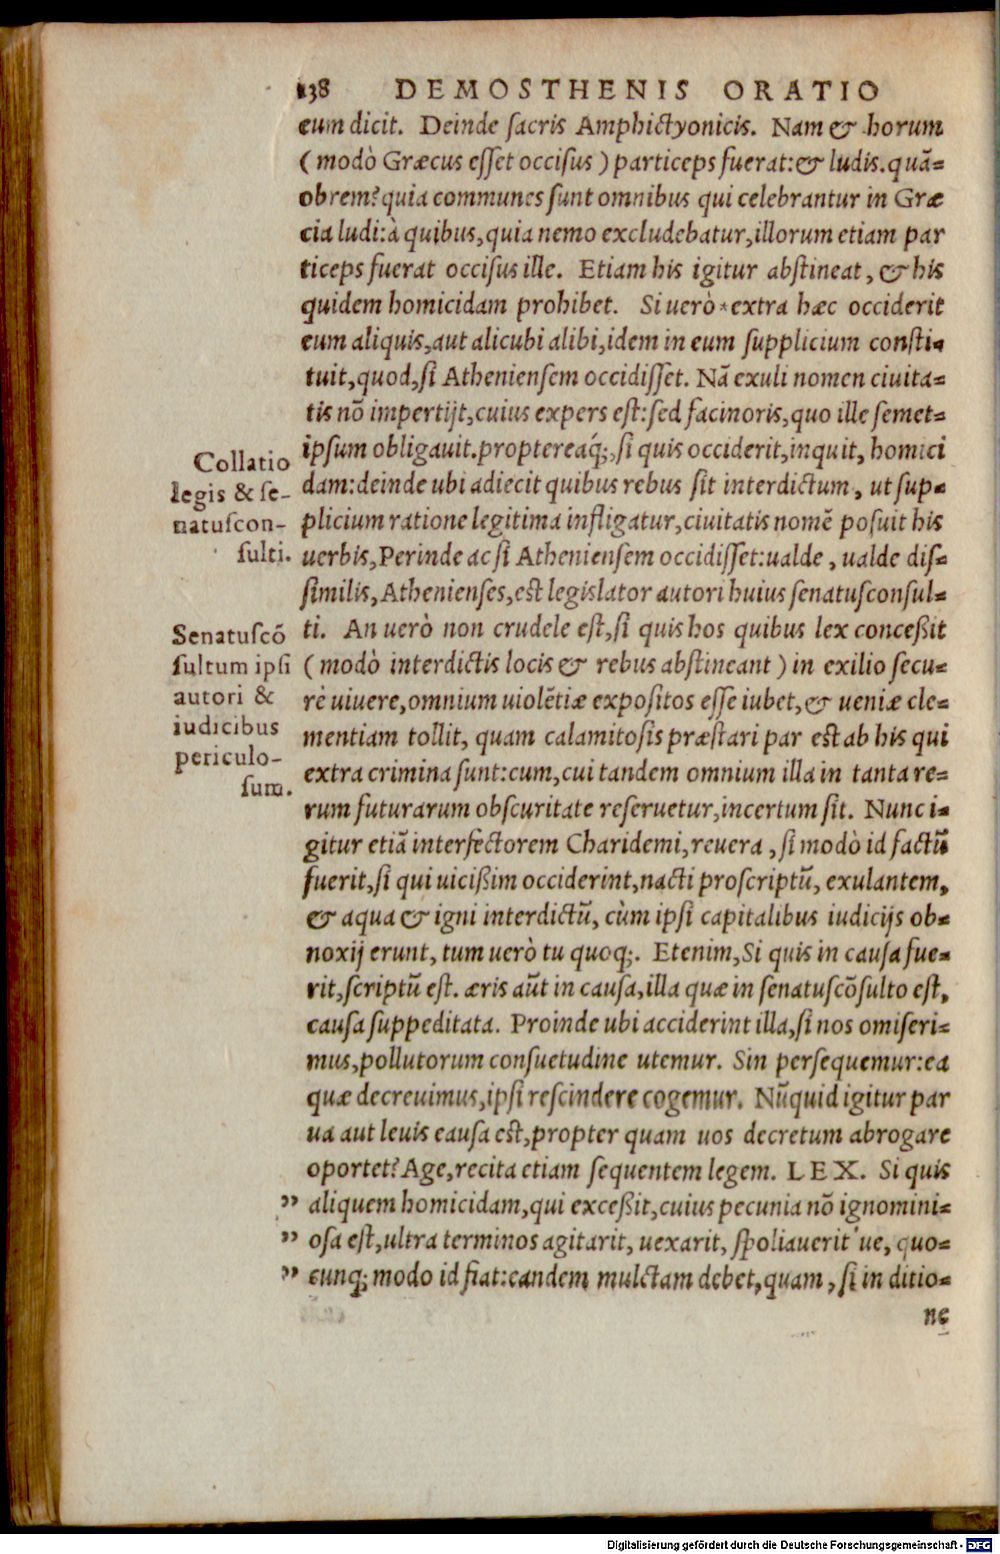 138 DEMOSTHENIS ORATIO
eum dicit. Deinde sacris Amphictyonicis. Nam & horum
(modò Græcus esset occisus) particeps fuerat:& ludis.quã-
obrem? quia communes sunt omnibus qui celebrantur in Græ
cia ludi:à quibus, quia nemo excludebatur, illorum etiam par
ticeps fuerat occisus ille. Etiam his igitur abstineat, & his
quidem homicidam prohibet. Si uerò * extra hæc occiderit
eum aliquis, aut alicubi alibi, idem in eum supplicium consti-
tuit, quod, si Atheniensem occidisset. Nã exuli nomen ciuita-
tis nõ impertijt, cuius expers est: sed facinoris, quo ille semet-
ipsum obligauit. propterea q́;, si quis occiderit, inquit, homici
dam: deinde ubi adiecit quibus rebus sit interdictum, ut sup-
plicium ratione legitima infligatur, ciuitatis nomẽ posuit his
uerbis, Perinde ac si Atheniensem occidisset: ualde, ualde dis-
similis, Athenienses, est legislator autori huius senatusconsul-
ti. An uerò non crudele est, si quis hos quibus lex conceßit
(modò interdictis locis & rebus abstineant) in exilio secu-
rè uiuere, omnium uiolẽtiæ expositos esse iubet, & ueniæ cle-
mentiam tollit, quam calamitosis præstari par est ab his qui
extra crimina sunt: cum, cui tandem omnium illa in tanta re-
rum futurarum obscuritate reseruetur, incertum sit. Nunc i-
gitur etiã interfectorem Charidemi, reuera, si modò id factũ
fuerit, si qui uicißim occiderint, nacti proscriptũ, exulantem,
& aqua & igni interdictũ, cùm ipsi capitalibus iudicijs ob-
noxij erunt, tum uerò tu quoq;. Etenim, Si quis in causa fue-
rit, scriptũ est. æris aũt in causa, illa quæ in senatuscõsulto est,
causa suppeditata. Proinde ubi acciderint illa, si nos omiseri-
mus, pollutorum consuetudine utemur. Sin persequemur: ea
quæ decreuimus, ipsi rescindere cogemur. Nũquid igitur par
ua aut leuis causa est, propter quam uos decretum abrogare
oportet? Age, recita etiam sequentem legem. LEX. Si quis
" aliquem homicidam, qui exceßit, cuius pecunia nõ ignomini-
" osa est, ultra terminos agitarit, uexarit, spoliauerit'ue, quo-
" cunq; modo id fiat: eandem mulctam debet, quam, si in ditio-
ne
Collatio
legis & se-
natuscon-
sulti.
Senatuscõ
sultum ipsi
autori &
iudicibus
periculo-
sum.
Digitalisierung gefördert durch die Deutsche Forschungsgemeinschaft - DFG